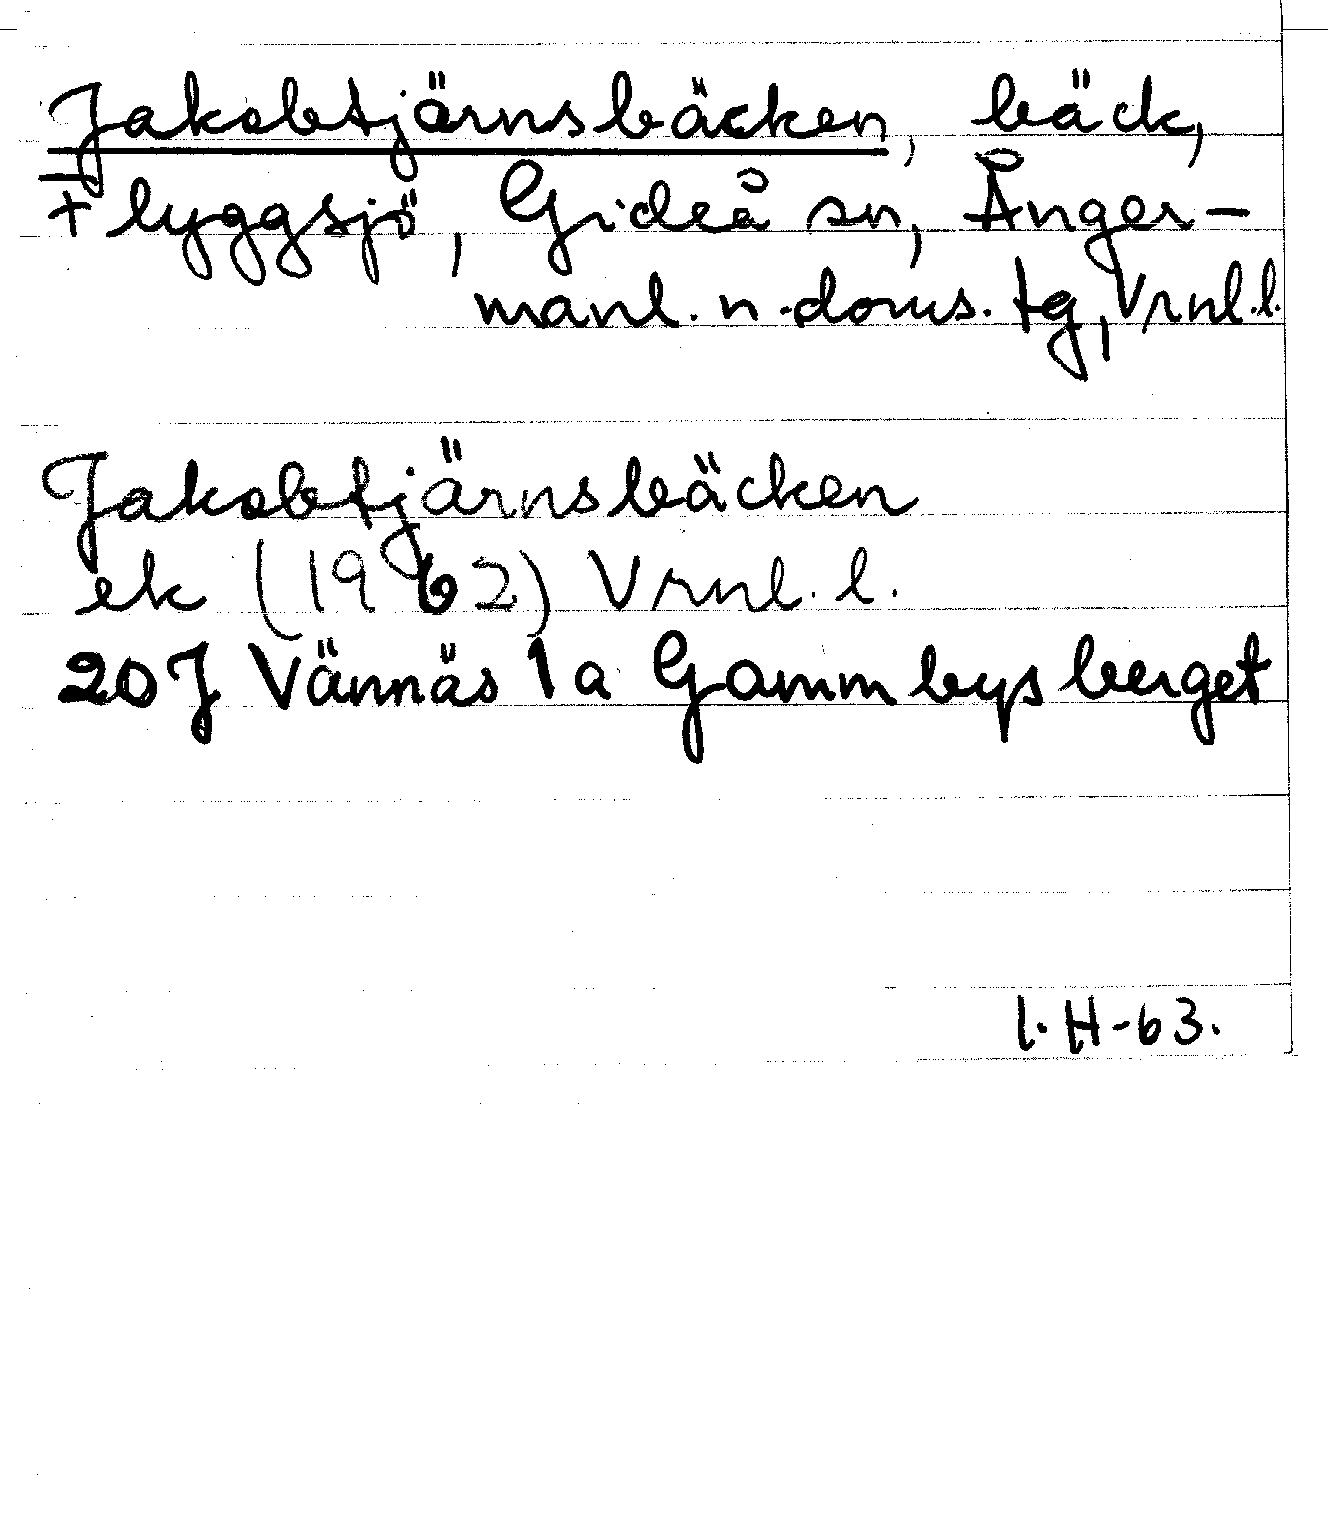 Jakobtjärnsbäcken, bäck,
Flyggsjö, Gideå sn, Ånger-
manl. n. doms. tg, Vrnl. l.
Jakobtjärnsbäcken
ek (1962) Vrnl. l.
20J Vännäs 1a Gammbysberget
I. H-63.